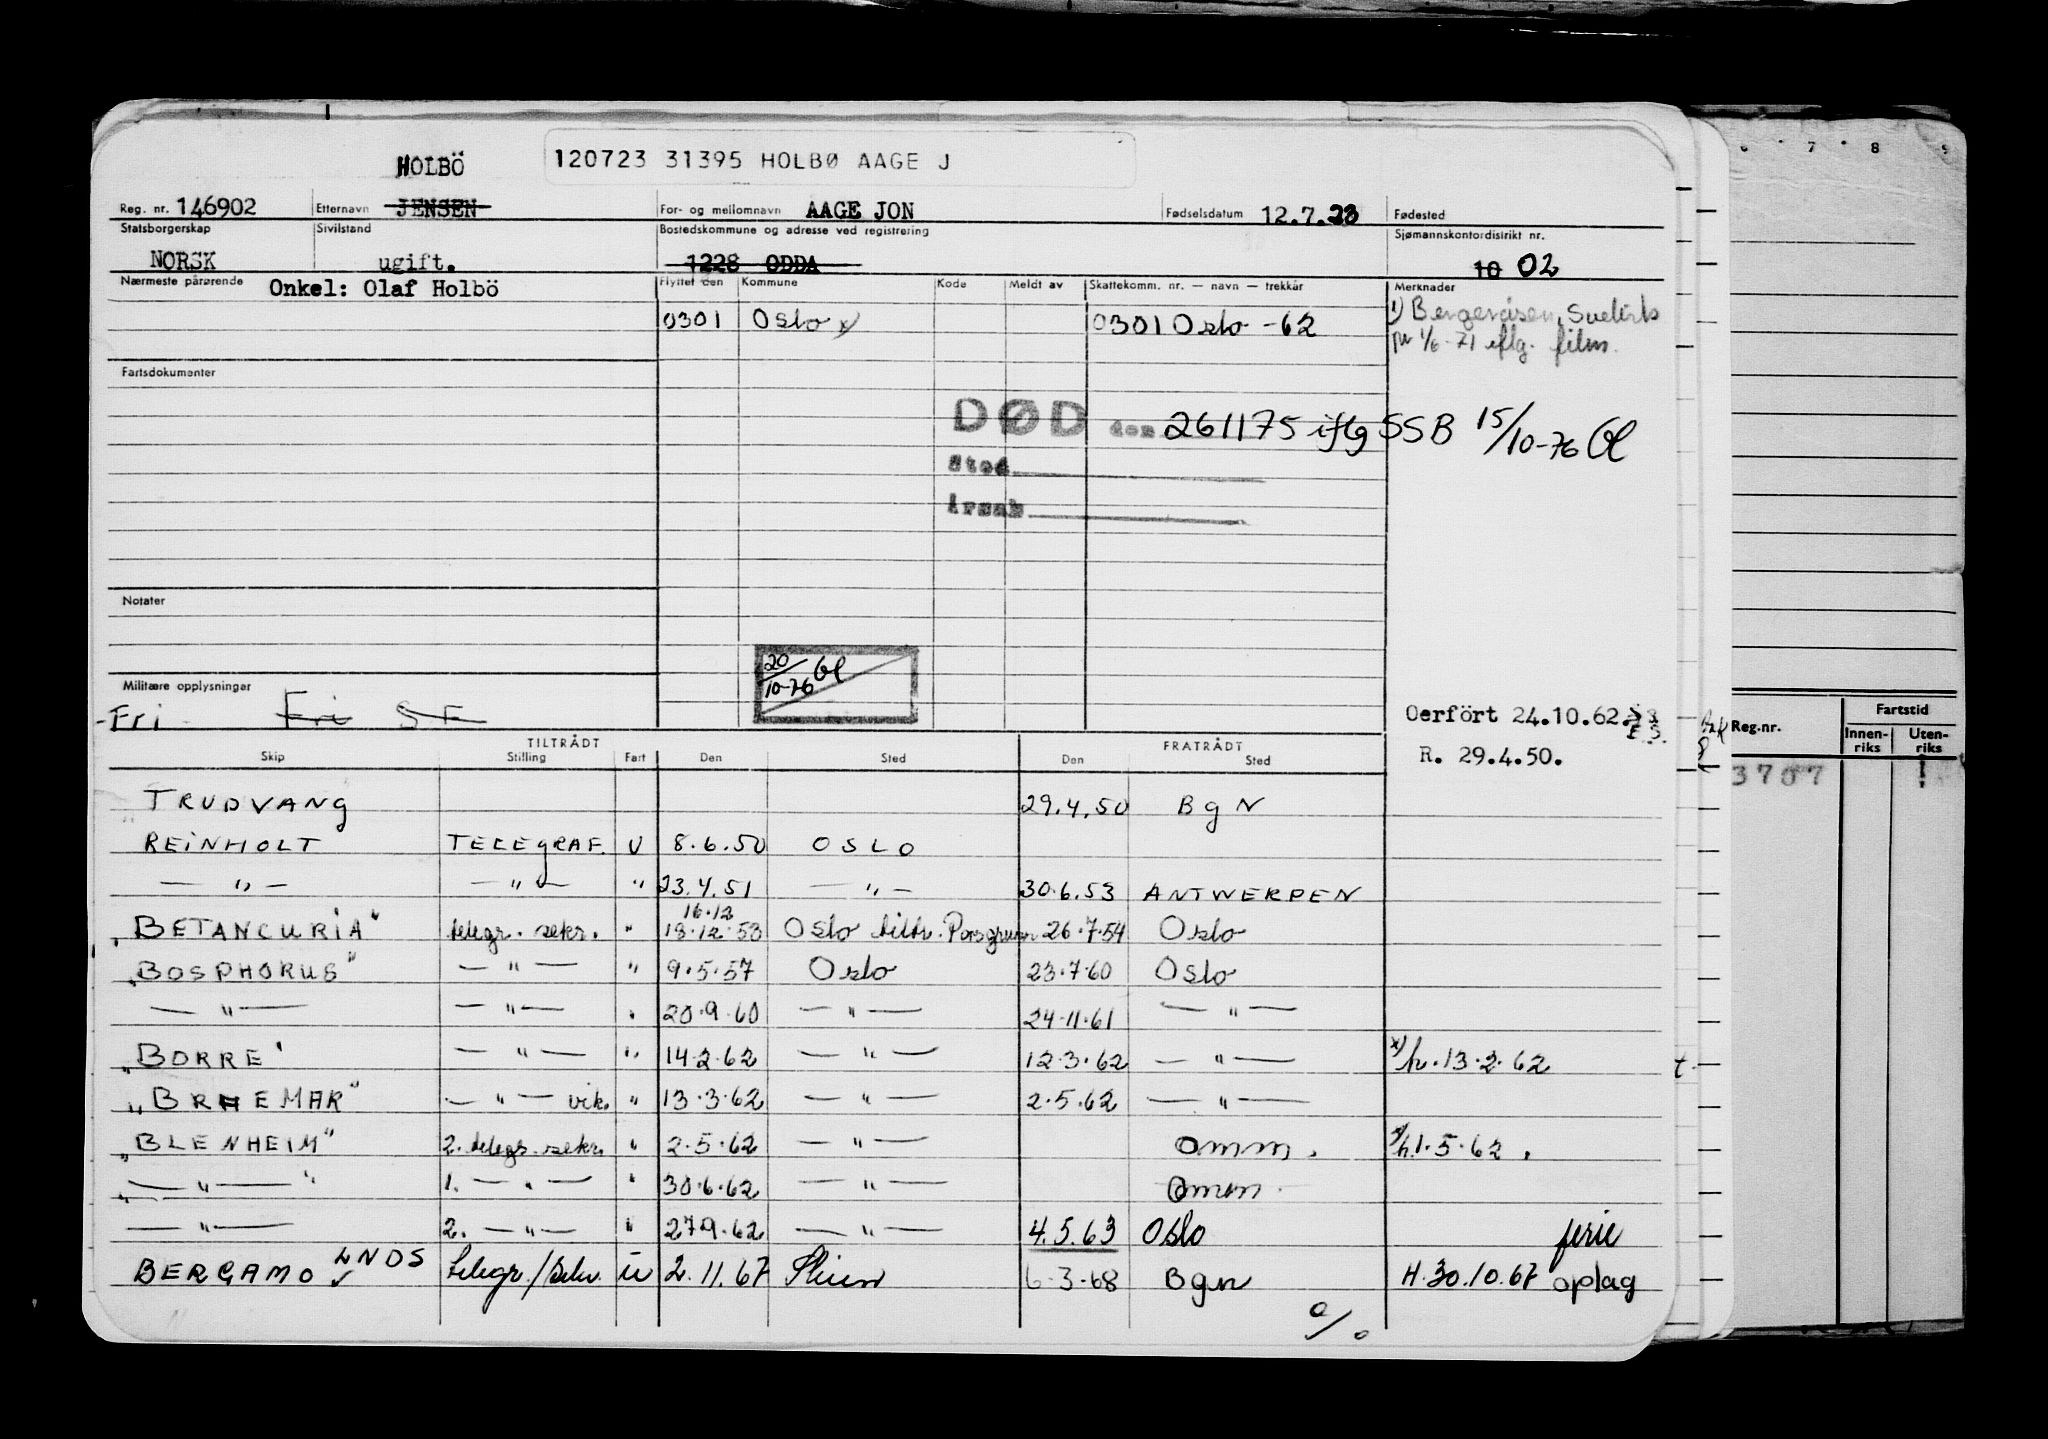 HOLBÖ
120723 31395 HOLBØ AAGE J
Reg. nr. 146902 Etternavn JENSEN For- og mellomnavn AAGE JON Fødselsdatum 12.7.23 Fødested
Statsborgerskap Sivilstand Bostedskommune og adresse ved registrering Sjømannskontordistrikt nr.
NORSK ugift. 1228 ODDA 10 02
Nærmeste pårørende Onkel: Olaf Holbö Flyttet den Kommune Kode Meldt av Skattekomm. nr. — navn — trekkår Merknader
0301 Oslo x) 0301 Oslo -62 1) Bergeråsen, Svelvik
pr 1/6-71 iflg. film.
Fartsdokumenter
DØD den 261175 iflg SSB 15/10-76 Gl
Sted
Årsak
Notater
20/10-76 Gl
Militære opplysninger
-Fri - Fri SF Overfört 24.10.62.
R. 29.4.50.
TILTRÅDT FRATRÅDT
Skip Stilling Fart Den Sted Den Sted
TRUDVANG 29.4.50 BgN
REINHOLT TELEGRAF. U 8.6.50 OSLO
— " — — " — " 23.4.51 — " — 30.6.53 ANTWERPEN
"BETANCURIA" telegr. sekr. " 16.12 18.12.53 Oslo tiltr. Porsgrunn 26.7.54 Oslo
"BOSPHORUS" — " — " 9.5.57 Oslo 23.7.60 Oslo
— " — — " — " 20.9.60 — " — 24.11.61 — " —
"BORRE" — " — " 14.2.62 — " — 12.3.62 — " — x) h.13.2.62
"BRAEMAR" — " — vik. " 13.3.62 — " — 2.5.62 — " —
"BLENHEIM" 2. telegr. sekr. " 2.5.62 — " — omm. x) h.1.5.62.
"— " —" 1. — " — " 30.6.62 — " — omm.
— " — 2. — " — " 27.9.62 — " — 4.5.63 Oslo ferie
BERGAMO LNDS telegr./ U 2.11.67 Skien 6.3.68 Bgn H.30.10.67 oplag
%
6 7 8 9
Reg.nr. Fartstid
Innen-riks Uten-riks
3707 1